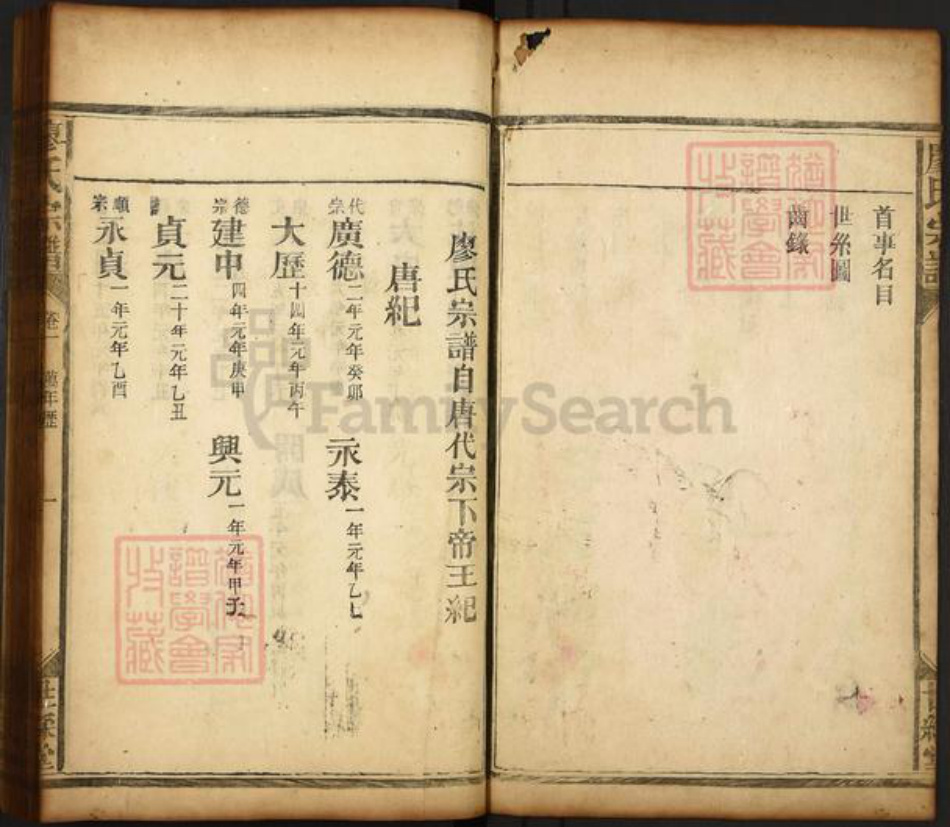 首事名目
世系圖
齒錄
廖氏宗譜自唐代宗下帝王紀
唐紀
代宗 廣德 二年元年癸卯 永泰 一年元年乙巳
大歷 十四年元年丙午
德宗 建中 四年元年庚申 興元 一年元年甲子
貞元 二十年元年乙丑
順宗 永貞 一年元年乙酉
廖氏宗譜 卷一 萬年歷 一
廖氏宗譜
譜學會
收藏
FamilySearch